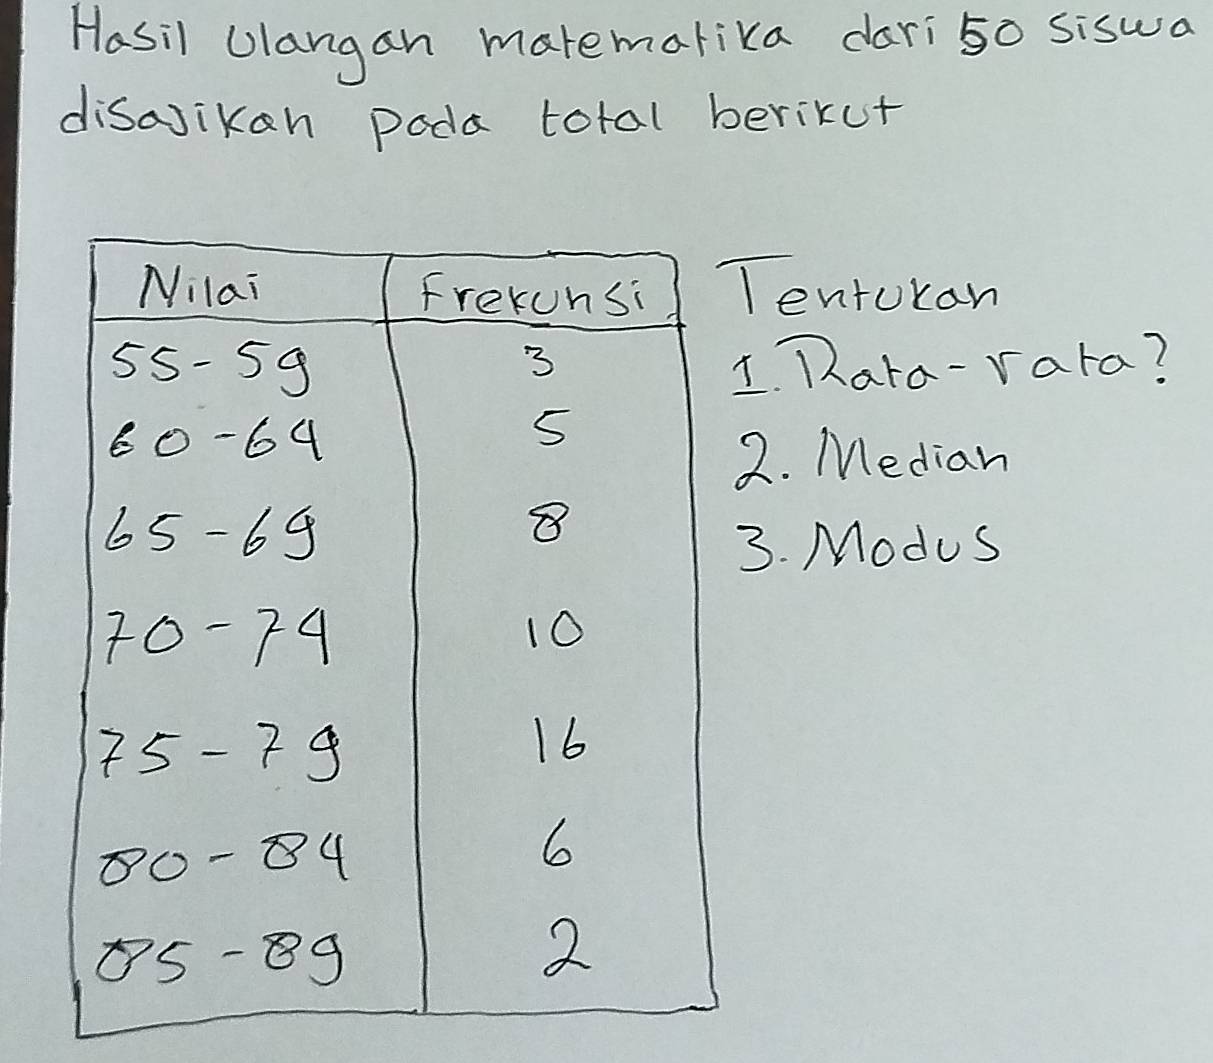 Hasil Ulangan matematika dari 50 siswa
disajikan pada total berikut
Nilai Frekunsi
55-59 3
60-64 5
65-69 8
70-74 10
75-79 16
80-84 6
85-89 2
Tentukan
1. Rata-rata?
2. Median
3. Modus